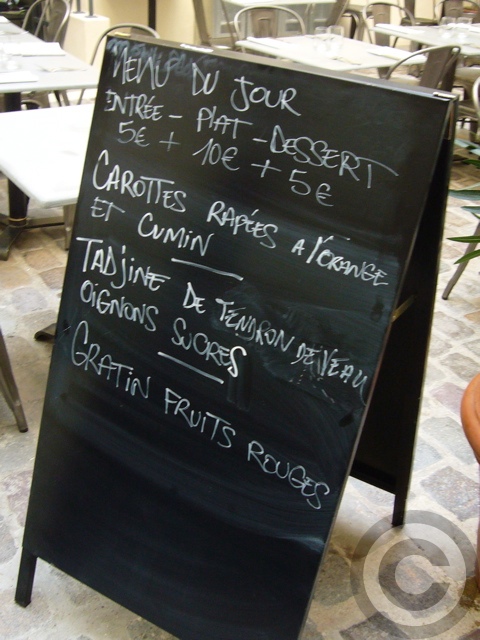 MENU DU JOUR
ENTRÉE - PLAT - DESSERT
5€ + 10€ + 5€
CAROTTES RAPÉES A l'ORANGE
ET CUMIN
TADJINE DE TENDRON DE VEAU
OIGNONS SUCRES
GRATIN FRUITS ROUGES
©